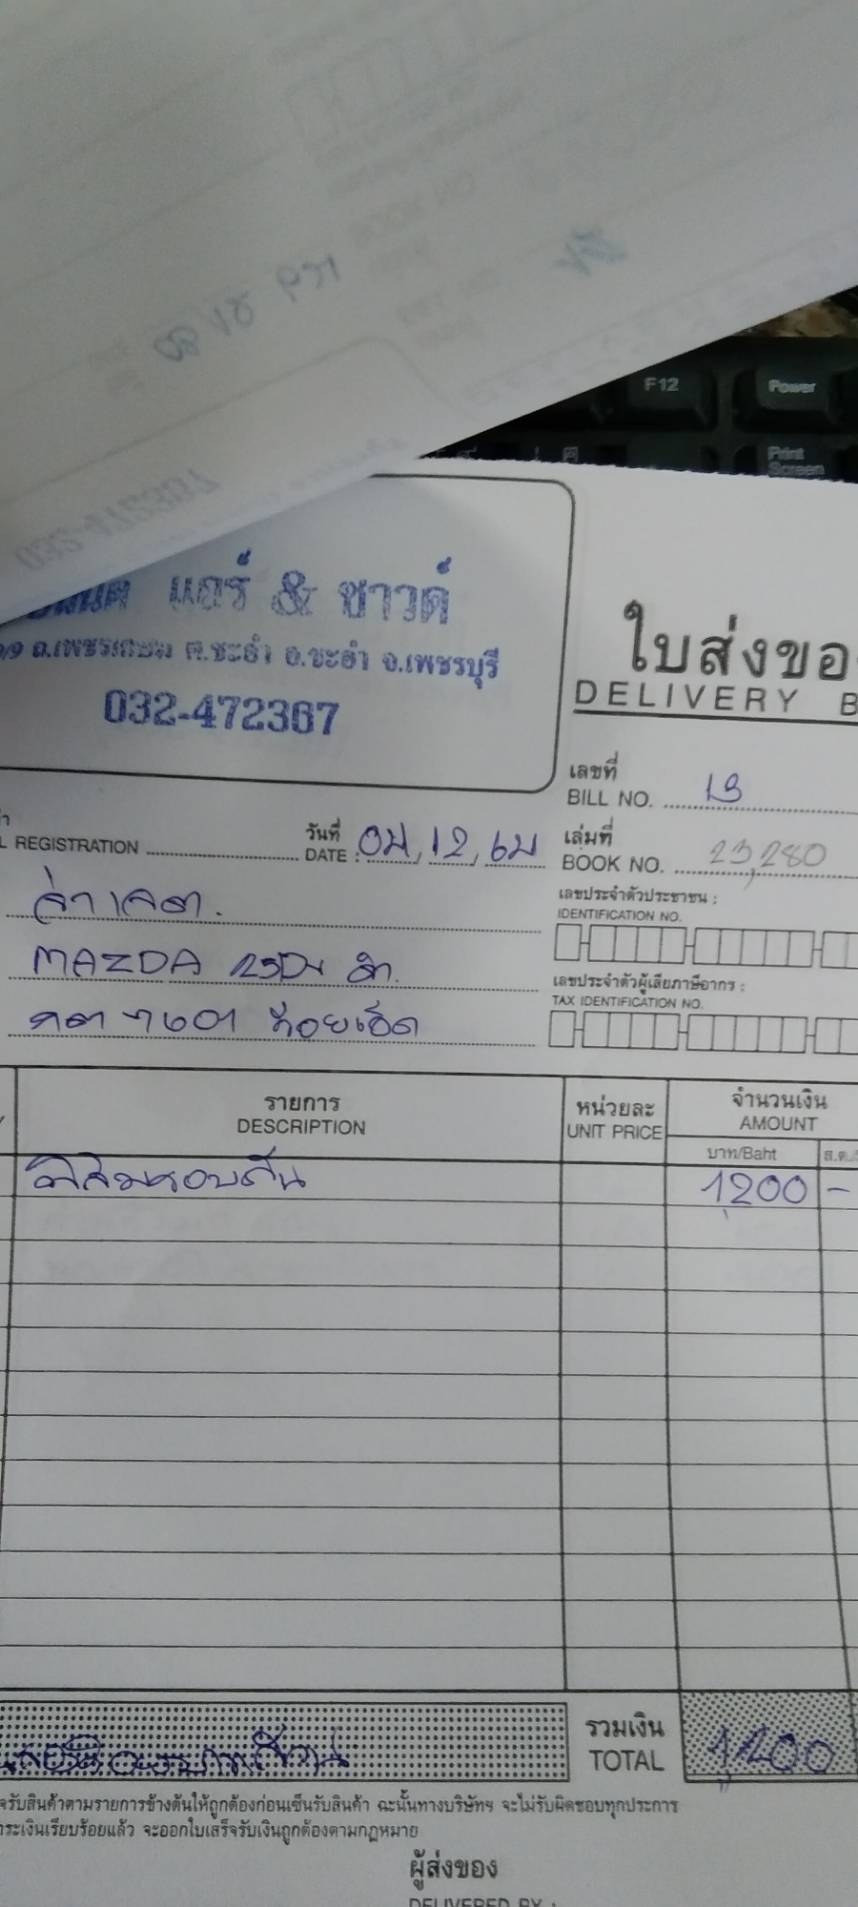 F12
Power
Print
Screen
แอร์ & ซาวด์
ถ.เพชรเกษม ต.ชะอำ อ.ชะอำ จ.เพชรบุรี
032-472367
ใบส่งขอ
DELIVERY B
เลขที่
BILL NO. 13
REGISTRATION
วันที่
DATE :
เล่มที่
BOOK NO. 23,280
เลขประจำตัวประชาชน :
IDENTIFICATION NO.
MAZDA
เลขประจำตัวผู้เสียภาษีอากร :
TAX IDENTIFICATION NO.
ร้อยเอ็ด
รายการ
DESCRIPTION
หน่วยละ
UNIT PRICE
จำนวนเงิน
AMOUNT
บาท/Baht
ฟิล์มรอบคัน 1,200 -
รวมเงิน
TOTAL 1,200
รับสินค้าตามรายการข้างต้นให้ถูกต้องก่อนเซ็นรับสินค้า ฉะนั้นทางบริษัทฯ จะไม่รับผิดชอบทุกประการ
ระเงินเรียบร้อยแล้ว จะออกใบเสร็จรับเงินถูกต้องตามกฎหมาย
ผู้ส่งของ
DELIVERED BY :